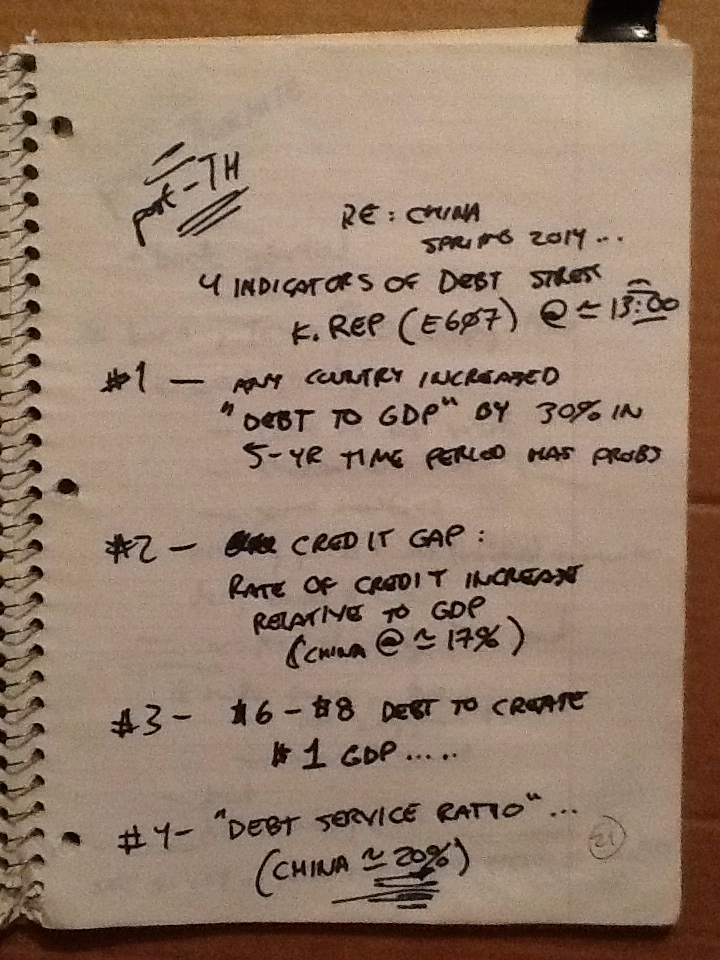 post-TH
RE: CHINA
SPRING 2014...
4 INDICATORS OF DEBT STRESS
K. REP (E607) @ ≈ 13:00
#1 — ANY COUNTRY INCREASED
"DEBT TO GDP" BY 30% IN
5-YR TIME PERIOD HAS PROBS
#2 — CREDIT GAP:
RATE OF CREDIT INCREASE
RELATIVE TO GDP
(CHINA @ ≈ 17%)
#3 - $6 - $8 DEBT TO CREATE
$1 GDP.....
#4- "DEBT SERVICE RATIO"...
(CHINA ≈ 20%)
21